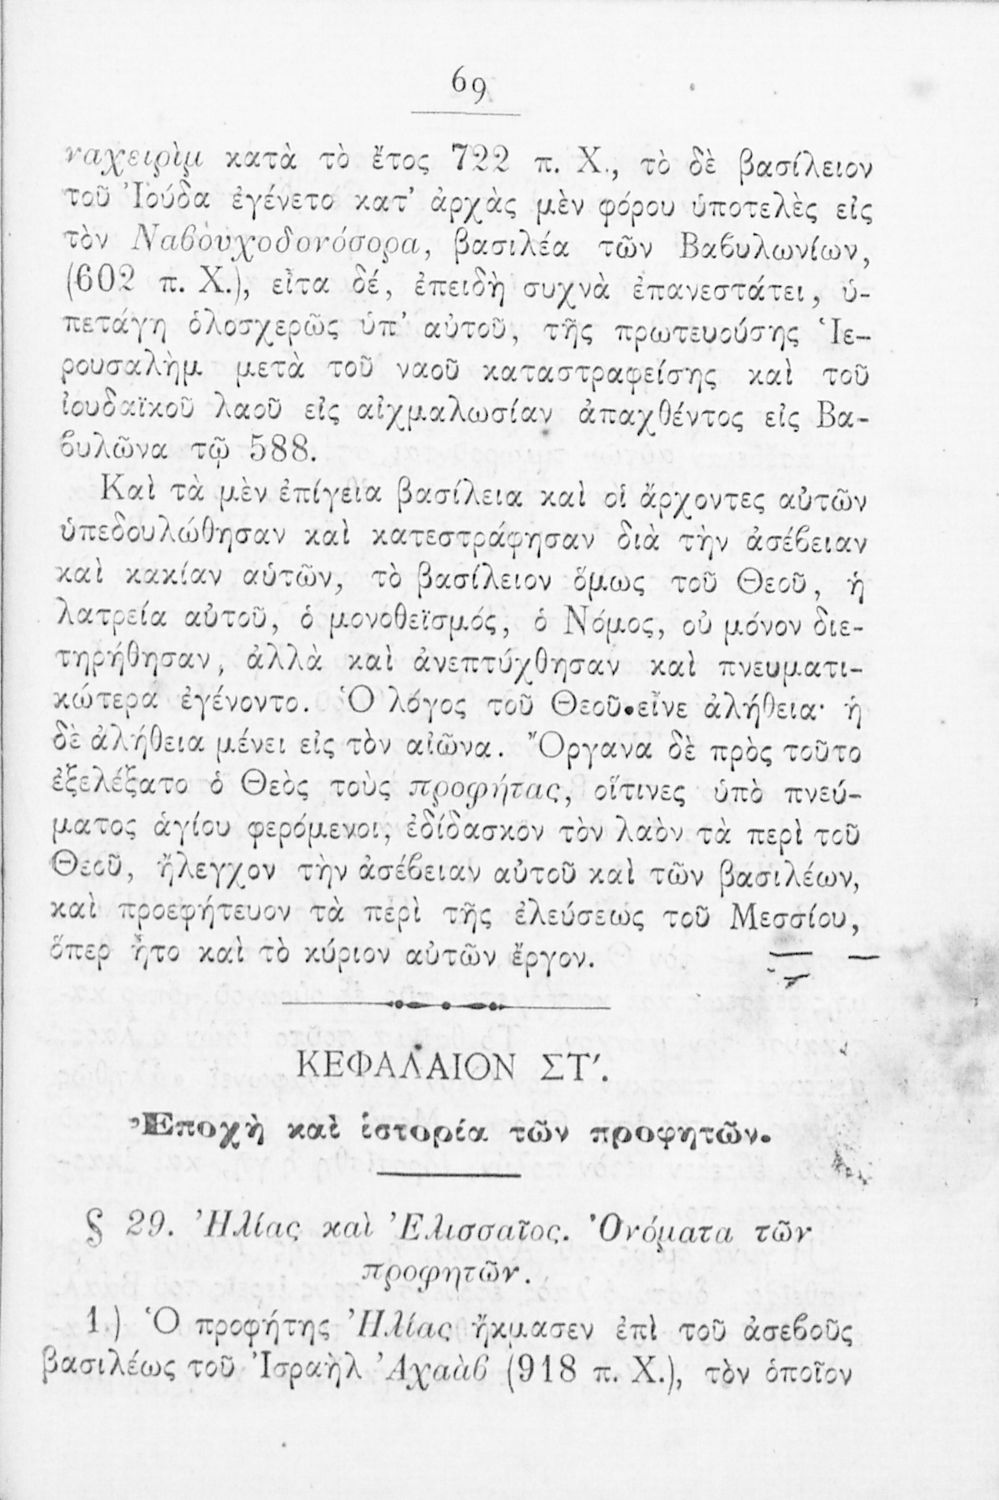 69
ναχειρὶμ κατὰ τὸ ἔτος 722 π. Χ., τὸ δὲ βασίλειον
τοῦ Ἰούδα ἐγένετο κατ’ ἀρχὰς μὲν φόρου ὑποτελὲς εἰς
τὸν Ναβουχοδονόσορα, βασιλέα τῶν Βαβυλωνίων,
(602 π. Χ.), εἶτα δέ, ἐπειδὴ συχνὰ ἐπανεστάτει, ὑ-
πετάγη ὁλοσχερῶς ὑπ’ αὐτοῦ, τῆς πρωτευούσης Ἱε-
ρουσαλὴμ μετὰ τοῦ ναοῦ καταστραφείσης καὶ τοῦ
ἰουδαϊκοῦ λαοῦ εἰς αἰχμαλωσίαν ἀπαχθέντος εἰς Βα-
βυλῶνα τῷ 588.
Καὶ τὰ μὲν ἐπίγεια βασίλεια καὶ οἱ ἄρχοντες αὐτῶν
ὑπεδουλώθησαν καὶ κατεστράφησαν διὰ τὴν ἀσέβειαν
καὶ κακίαν αὑτῶν, τὸ βασίλειον ὅμως τοῦ Θεοῦ, ἡ
λατρεία αὐτοῦ, ὁ μονοθεϊσμός, ὁ Νόμος, οὐ μόνον διε-
τηρήθησαν, ἀλλὰ καὶ ἀνεπτύχθησαν καὶ πνευματι-
κώτερα ἐγένοντο. Ὁ λόγος τοῦ Θεοῦ εἶνε ἀλήθεια· ἡ
δὲ ἀλήθεια μένει εἰς τὸν αἰῶνα. Ὄργανα δὲ πρὸς τοῦτο
ἐξελέξατο ὁ Θεὸς τοὺς προφήτας, οἵτινες ὑπὸ πνεύ-
ματος ἁγίου φερόμενοι, ἐδίδασκον τὸν λαὸν τὰ περὶ τοῦ
Θεοῦ, ἤλεγχον τὴν ἀσέβειαν αὐτοῦ καὶ τῶν βασιλέων,
καὶ προεφήτευον τὰ περὶ τῆς ἐλεύσεως τοῦ Μεσσίου,
ὅπερ ἦτο καὶ τὸ κύριον αὐτῶν ἔργον.
ΚΕΦΑΛΑΙΟΝ ΣΤ′.
Ἐποχὴ καὶ ἱστορία τῶν προφητῶν.
§ 29. Ἠλίας καὶ Ἐλισσαῖος. Ὀνόματα τῶν
προφητῶν.
1.) Ὁ προφήτης Ἠλίας ἤκμασεν ἐπὶ τοῦ ἀσεβοῦς
βασιλέως τοῦ Ἰσραὴλ Ἀχαὰβ (918 π. Χ.), τὸν ὁποῖον